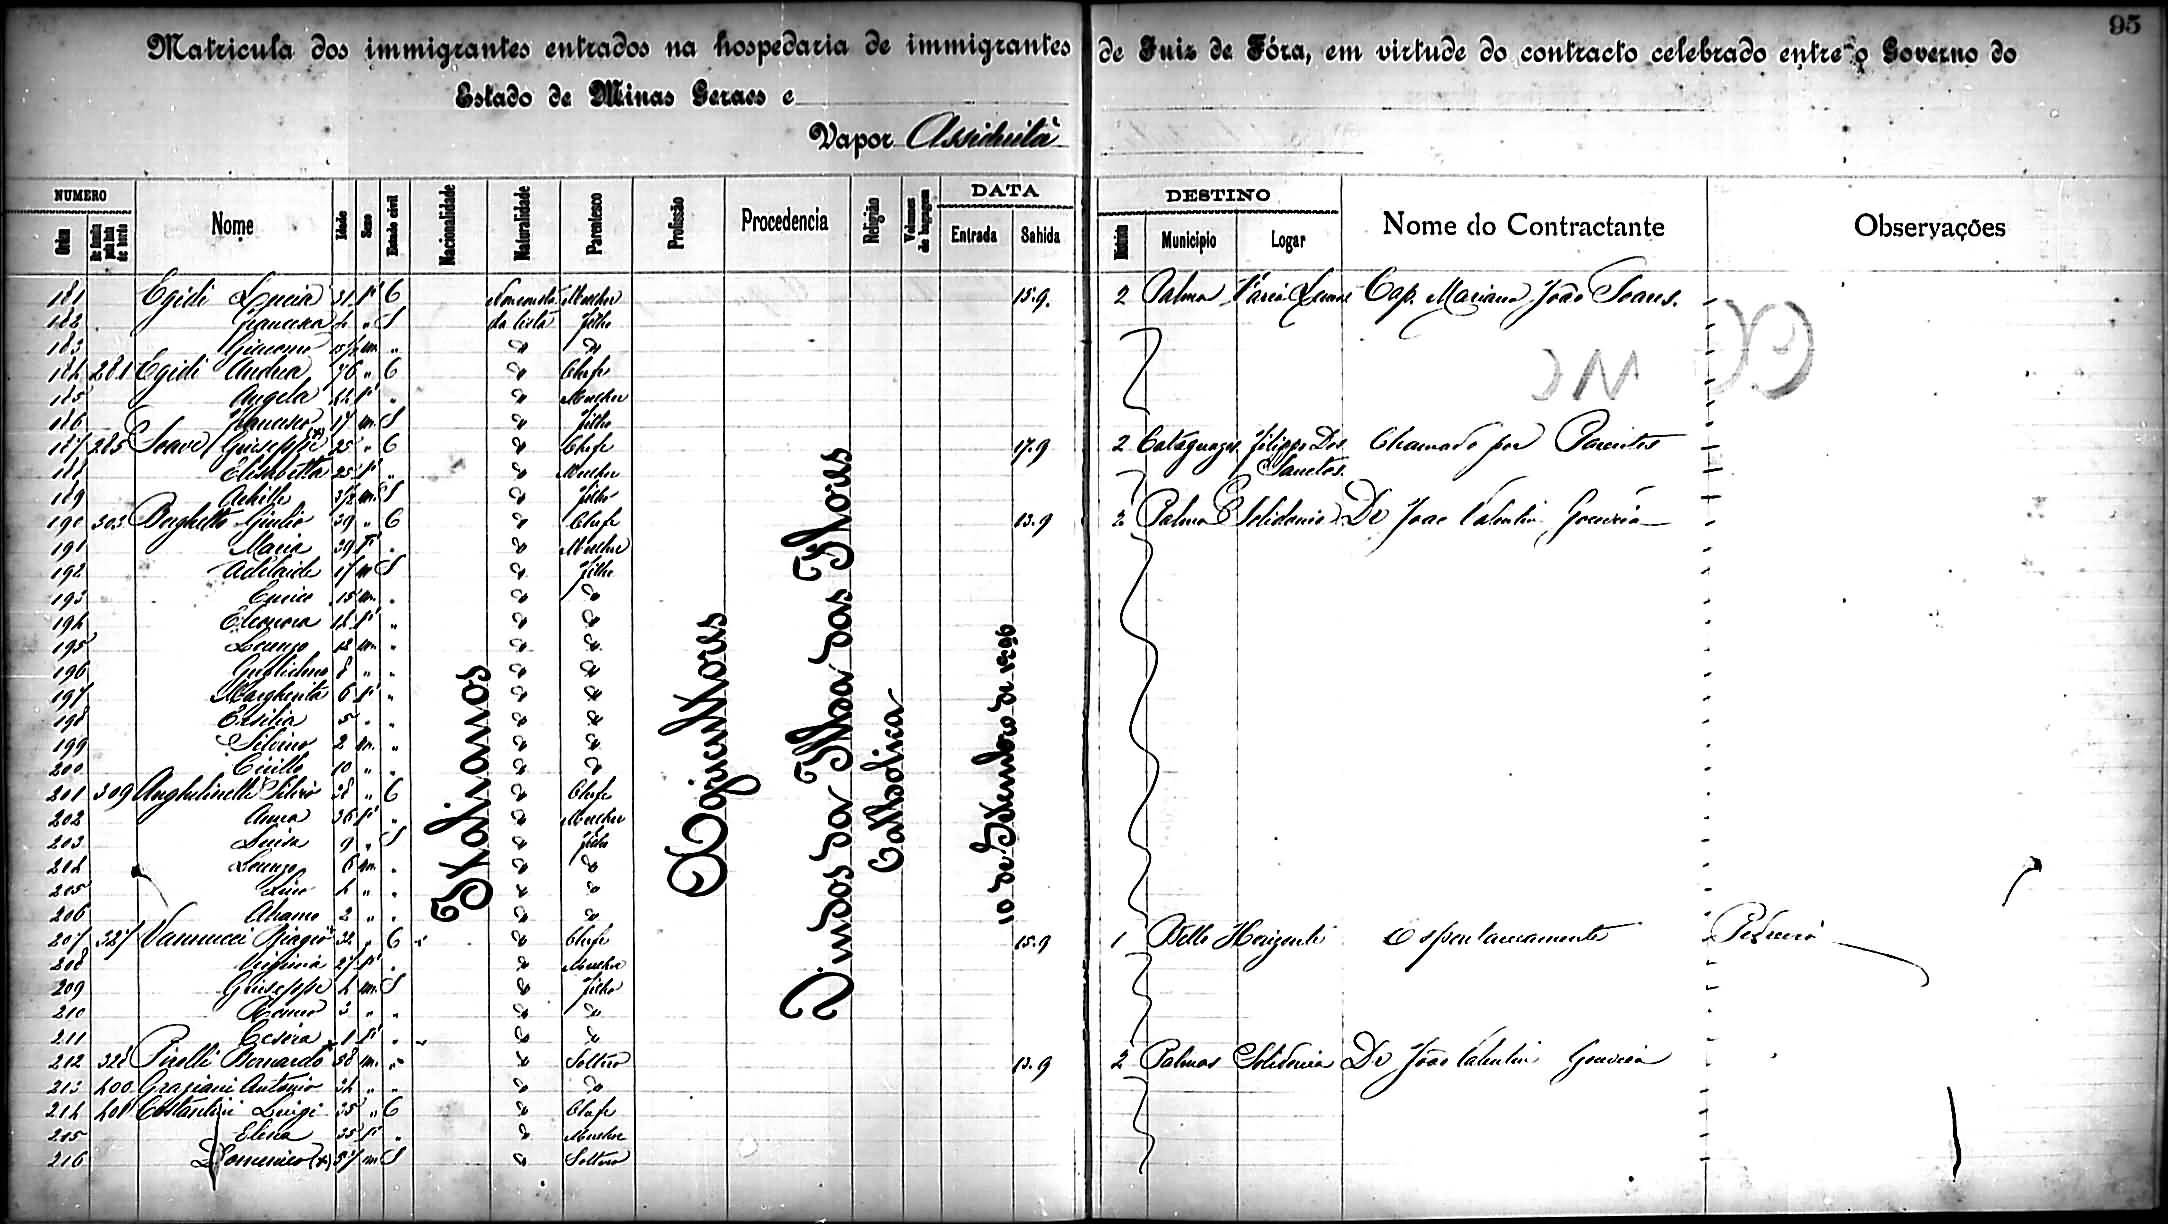 95
Matricula dos immigrantes entrados na hospedaria de immigrantes de Juiz de Fóra, em virtude do contracto celebrado entre o Governo do
Estado de Minas Geraes e
Vapor Assiduità
NUMERO DATA DESTINO
Ordem de familia pela lista de bordo Nome Idade Sexo Estado civil Nacionalidade Naturalidade Parentesco Profissão Procedencia Religião Volumes de bagagem Entrada Sahida Districto Municipio Logar Nome do Contractante Observações
181 Egidi Lucia 31 f C Non consta Mulher 15.9. 2 Palma Cap. Mariano João Soares.
182 Francesca 4 " S da lista Filho
183 Giacomo m "
184 281 Egidi Andrea 76 " C Chefe
185 Angela f " Mulher
186 Francesco 17 m S Filho
187 285 Soave Giuseppe (x) 25 " C Chefe 17.9 2 Cataguazes Filippe Dos Sanctos Chamado por Parentes
188 Elisabetta 25 f " Mulher
189 Achille m S Filho
190 303 Borghetto Giulio 39 " C Chefe 13.9 2 Palma Solidonio Dr Joao Valentim Gouveia
191 Maria 39 f " Mulher
192 Adelaide 17 m S Filho
193 Enrico 15 m "
194 Eleonora 14 f "
195 Lorenzo 12 m "
196 Guglielmo 8 " "
197 Margherita 6 f "
198 Ersilia 5 " "
199 Silvino 2 m "
200 Cirillo 10 " "
201 309 Anghelinelli Silvio 38 " C Chefe
202 Anna 36 f " Mulher
203 Luisa 9 " S Filho
204 Lorenzo 6 m "
205 Lino 4 " "
206 Abramo 2 " "
207 327 Vannucci Biagio 32 " C Chefe 15.9 1 Bello Horizonte Espontaneamente Pedreiro
208 Virginia 27 f " Mulher
209 Giuseppe 4 m S Filho
210 Romeo 3 " "
211 Cesira 1 f "
212 328 Pirelli Bernardo 38 m " Solteiro 13.9 2 Palmas Solidonio Dr João Valentim Gouveia
213 400 Graziani Antonio 34 " "
214 401 Costantini Luigi 35 " C Chefe
215 Elena 35 f " Mulher
216 Domenico (x) 37 m S Solteiro
Italianos
Agricultores
Vindos da Ilha das Flores
Catholica
10 de Setembro de 1896